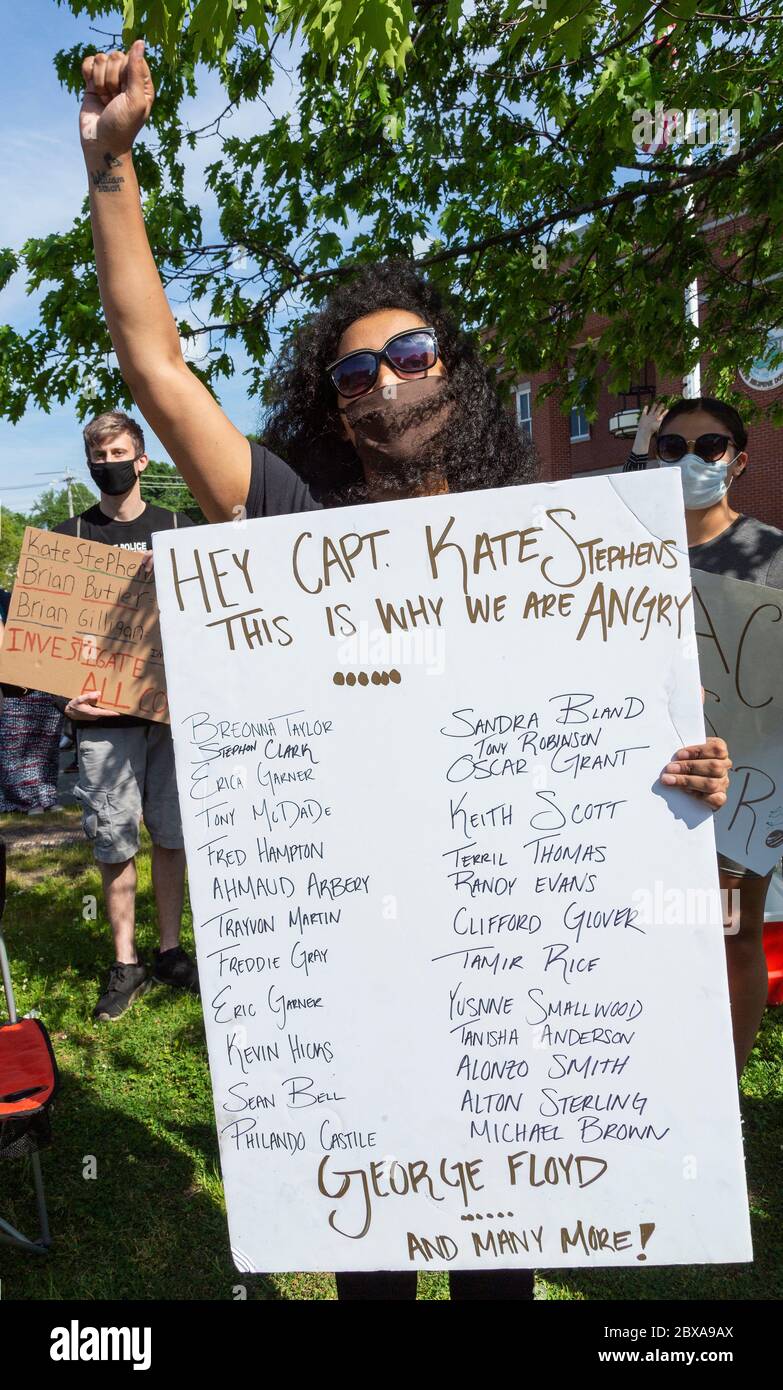 HEY CAPT. KATE STEPHENS
THIS IS WHY WE ARE ANGRY
......
BREONNA TAYLOR
STEPHON CLARK
ERICA GARNER
TONY McDADE
FRED HAMPTON
AHMAUD ARBERY
TRAYVON MARTIN
FREDDIE GRAY
ERIC GARNER
KEVIN HICKS
SEAN BELL
PHILANDO CASTILE
SANDRA BLAND
TONY ROBINSON
OSCAR GRANT
KEITH SCOTT
TERRIL THOMAS
RANDY EVANS
CLIFFORD GLOVER
TAMIR RICE
YUSNNE SMALLWOOD
TANISHA ANDERSON
ALONZO SMITH
ALTON STERLING
MICHAEL BROWN
GEORGE FLOYD
......
AND MANY MORE!
Kate Stephen
Brian Butler
Brian Gilligan
INVESTIGATE
ALL
POLICE
William
alamy
Image ID: 2BXA9AX
www.alamy.com